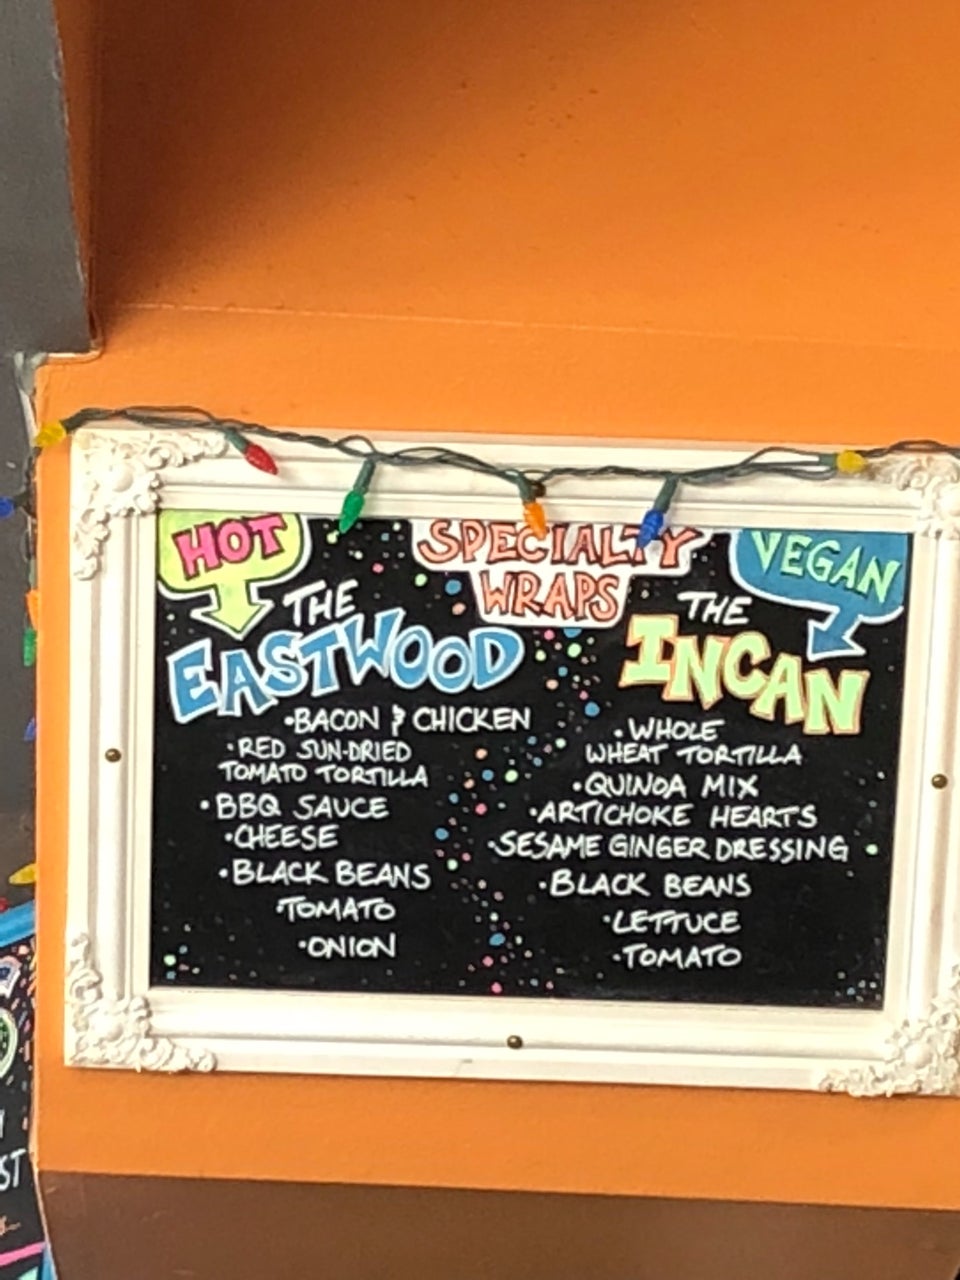 HOT
SPECIALTY
WRAPS
VEGAN
THE
EASTWOOD
•BACON & CHICKEN
•RED SUN-DRIED
TOMATO TORTILLA
•BBQ SAUCE
•CHEESE
•BLACK BEANS
•TOMATO
•ONION
THE
INCAN
•WHOLE
WHEAT TORTILLA
•QUINOA MIX
•ARTICHOKE HEARTS
•SESAME GINGER DRESSING
•BLACK BEANS
•LETTUCE
•TOMATO